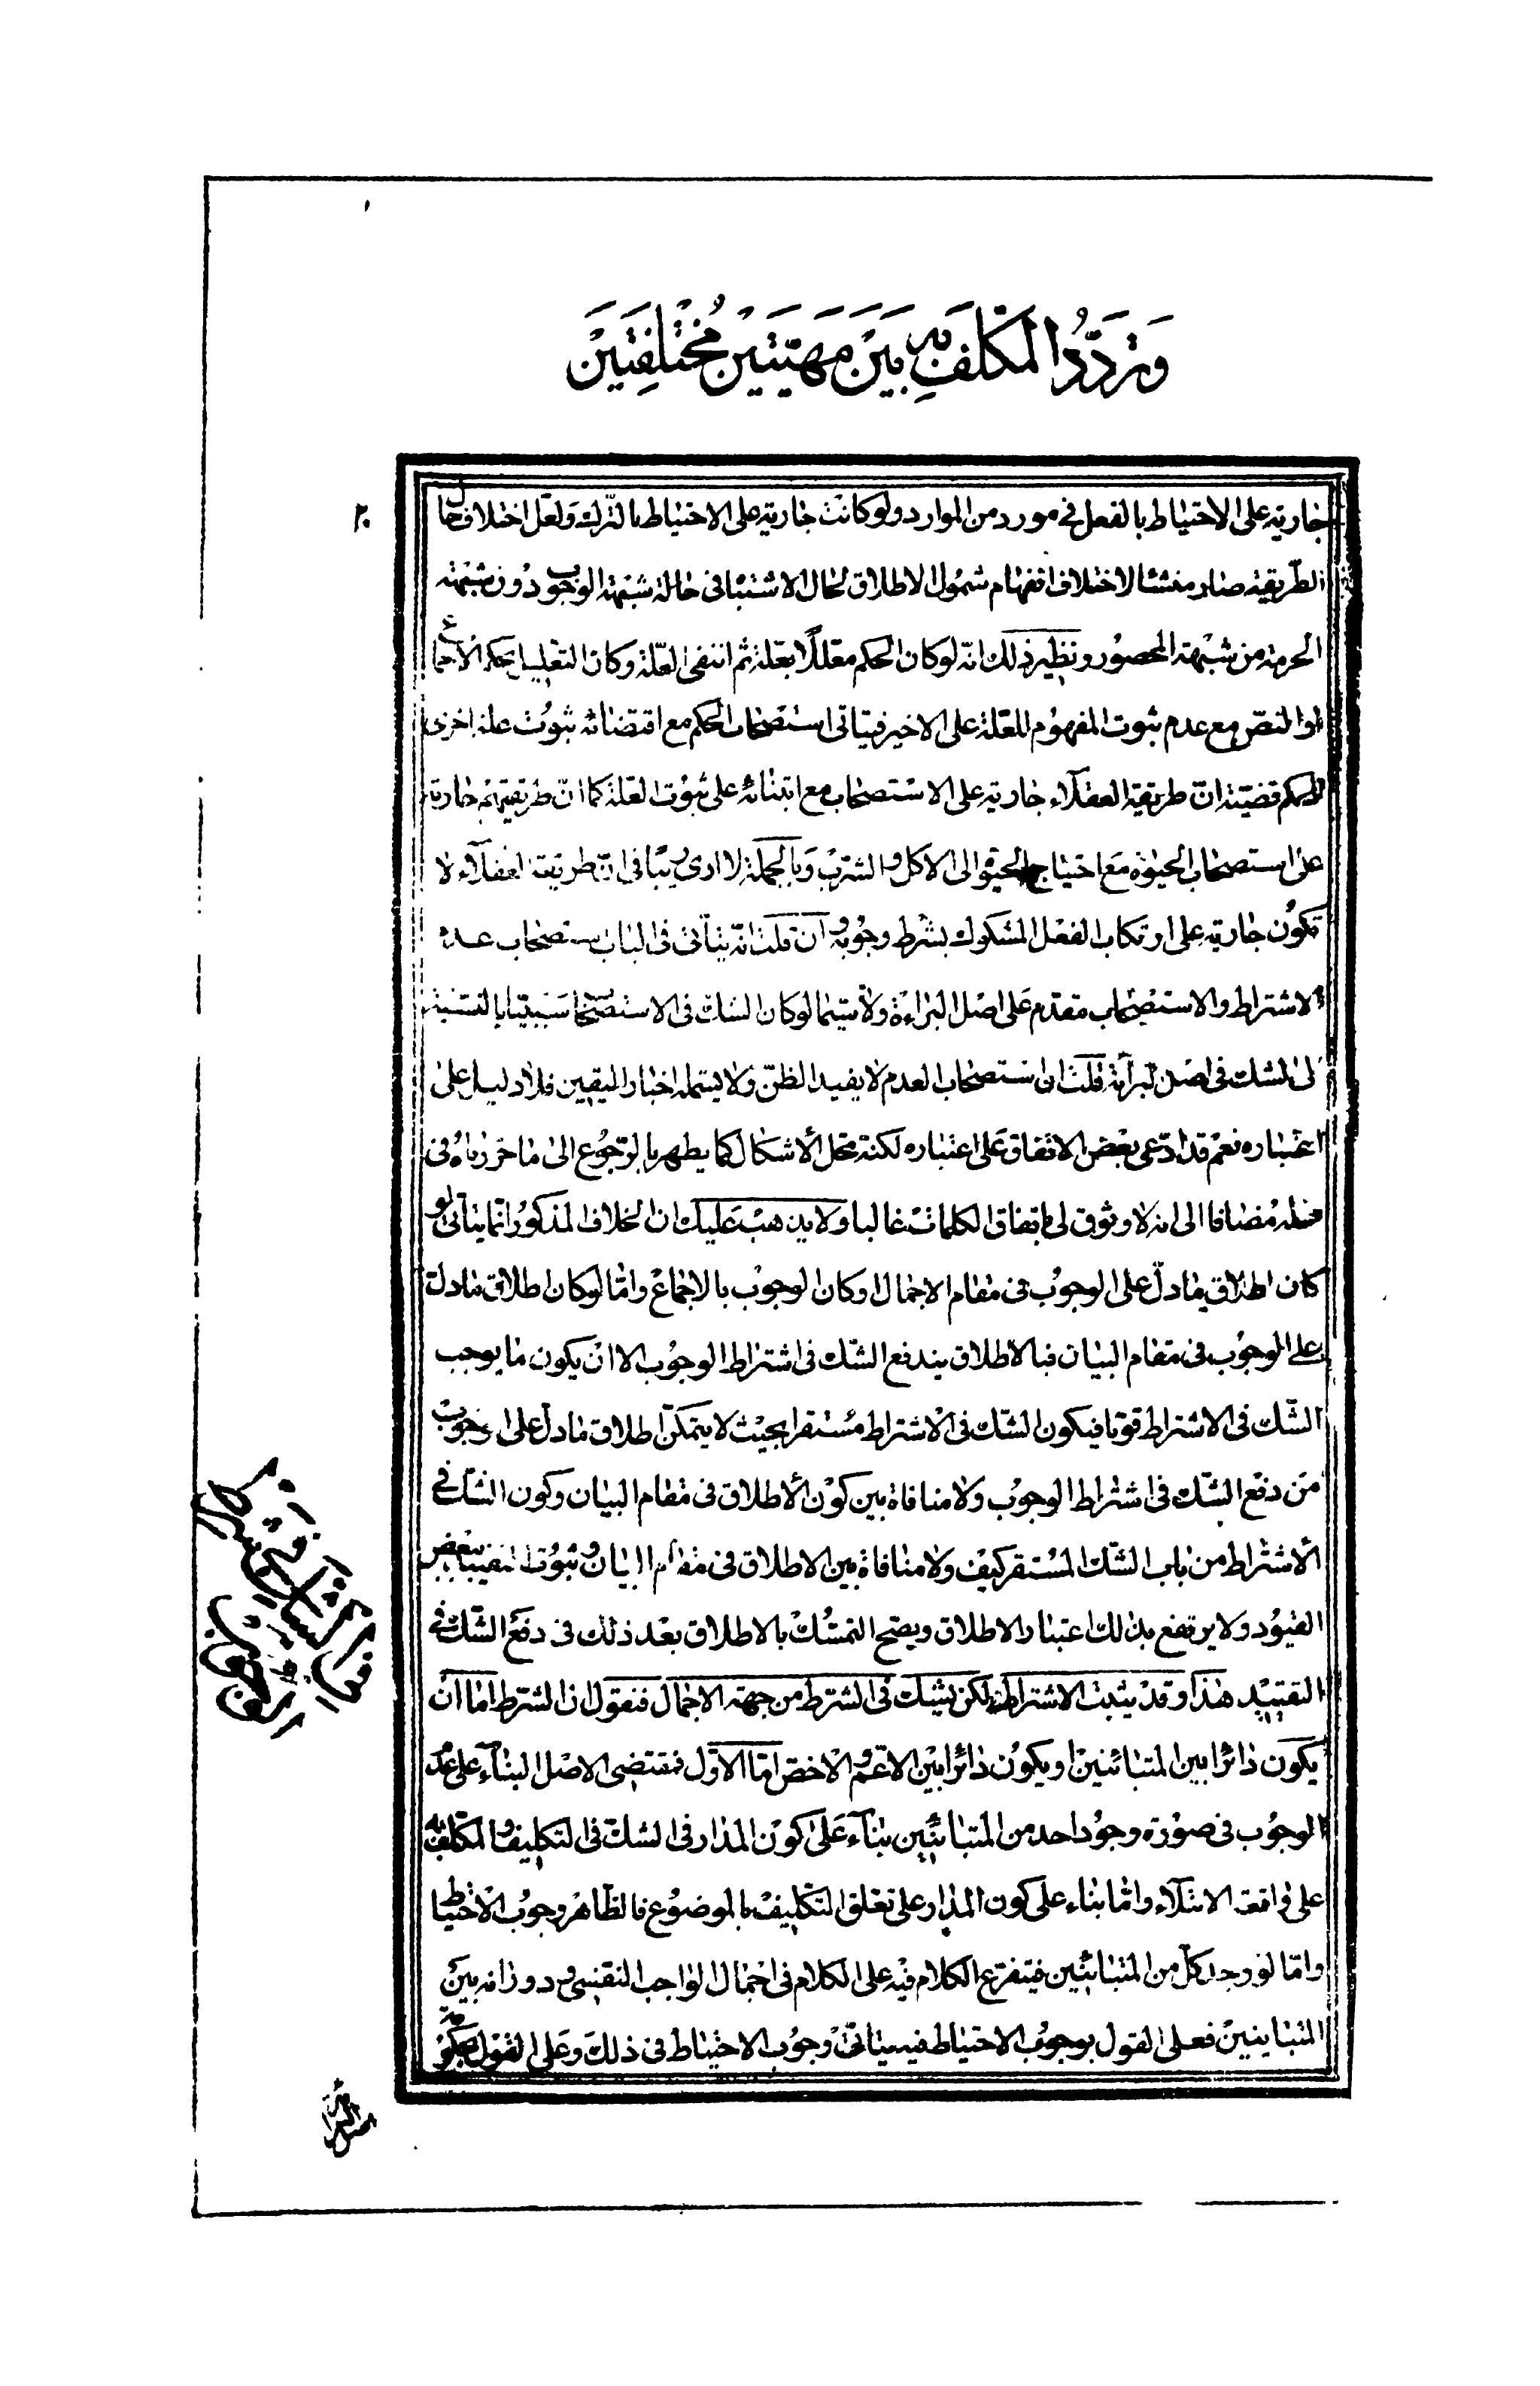 وَتردّدُ المكلّف به بَيْنَ مَهيّتين مُختَلِفتَين
٢٠
جارية على الاحتياط بالفعل في مورد من الموارد ولو كانت جارية على الاحتياط بالترك ولعل اختلاف حال
الطّريقية صار منشئا لاختلاف انفهام شمول الاطلاق لحال الاشتباه في حالة شبهة الوجوب دون شبهة
الحرمة من شبهة المحصور ونظير ذلك انّه لو كان الحكم معلّلًا بعلّة ثم انتفى العلّة وكان التعليل بحكم الاجماع
او النصّ مع عدم ثبوت المفهوم للعلّة على الاخير فيتاتى استصحاب الحكم مع اقتضائه ثبوت علة اخرى
للحكم قضيّة انّ طريقة العقلاء جارية على الاستصحاب مع ابتنائه على ثبوت العلة كما انّ طريقتهم جارية
على استصحاب الحيوة مع احتياج الحيوة الى الاكل والشرب وبالجملة لا ارى ريبا في انّ طريقة العقلاء لا
تكون جارية على ارتكاب الفعل المشكوك بشرط وجوبه وان قلت انّه يتأتى في الباب استصحاب عدم
الاشتراط والاستصحاب مقدم على اصل البراءة ولا سيّما لو كان الشك في الاستصحاب سببيّا بالنسبة
الى الشك في اصل البرائة قلت ان استصحاب العدم لا يفيد الظنّ ولا يشمله اخبار اليقين فلا دليل على
اعتباره نعم قد ادّعى بعض الاتفاق على اعتباره لكنّه محل الاشكال كما يظهر بالرّجوع الى ما حررناه في
محله مضافا الى انه لا وثوق لي باتفاق الكلمات غالبا ولا يذهب عليك ان الخلاف المذكور انما يتأتى لو
كان اطلاق ما دلّ على الوجوب في مقام الاجمال او كان الوجوب بالاجماع وامّا لو كان اطلاق ما دل
على الوجوب في مقام البيان فبالاطلاق يندفع الشك في اشتراط الوجوب الا ان يكون ما يوجب
الشّك في الاشتراط قويا فيكون الشّك في الاشتراط مستقرا بحيث لا يتمكن اطلاق ما دل على وجوب
من دفع الشّك في اشتراط الوجوب ولا منافاة بين كون الاطلاق في مقام البيان وكون الشّك في
الاشتراط من باب الشّك المستقر كيف ولا منافاة بين الاطلاق في مقام البيان وثبوت التقييد ببعض
القيود ولا يرتفع بذلك اعتبار الاطلاق ويصح التمسّك بالاطلاق بعد ذلك في دفع الشّك في
التقييد هذا وقد يثبت الاشتراط لكن يشك في الشرط من جهة الاجمال فنقول ان الشرط اما ان
يكون دائرا بين المتبائنين او يكون دائرا بين الاعم والاخص امّا الاوّل فمقتضى الاصل البناء على عدم
الوجوب في صورة وجود احد من المتبائنين بناء على كون المدار في الشك في التكليف والمكلّف به
على واقعة الابتلاء وامّا بناء على كون المدار على تعلق التكليف بالموضوع فالظّاهر وجوب الاحتياط
وامّا لو وجد كلّ من المتبائنين فيتفرع الكلام فيه على الكلام في اجمال الواجب النفسي ودورانه بين
المتباينين فعلى القول بوجوب الاحتياط فيتاتى وجوب الاحتياط في ذلك وعلى القول بحكومة
اصل البرائة